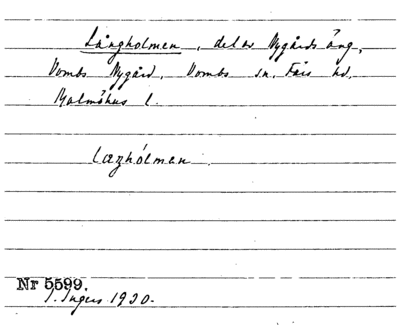 Långholmen, del av Nygårds äng,
Vombs Nygård, Vombs sn, Färs hd,
Malmöhus l.
Lazhólmen
Nr 5599.
I. Ingers 1930.